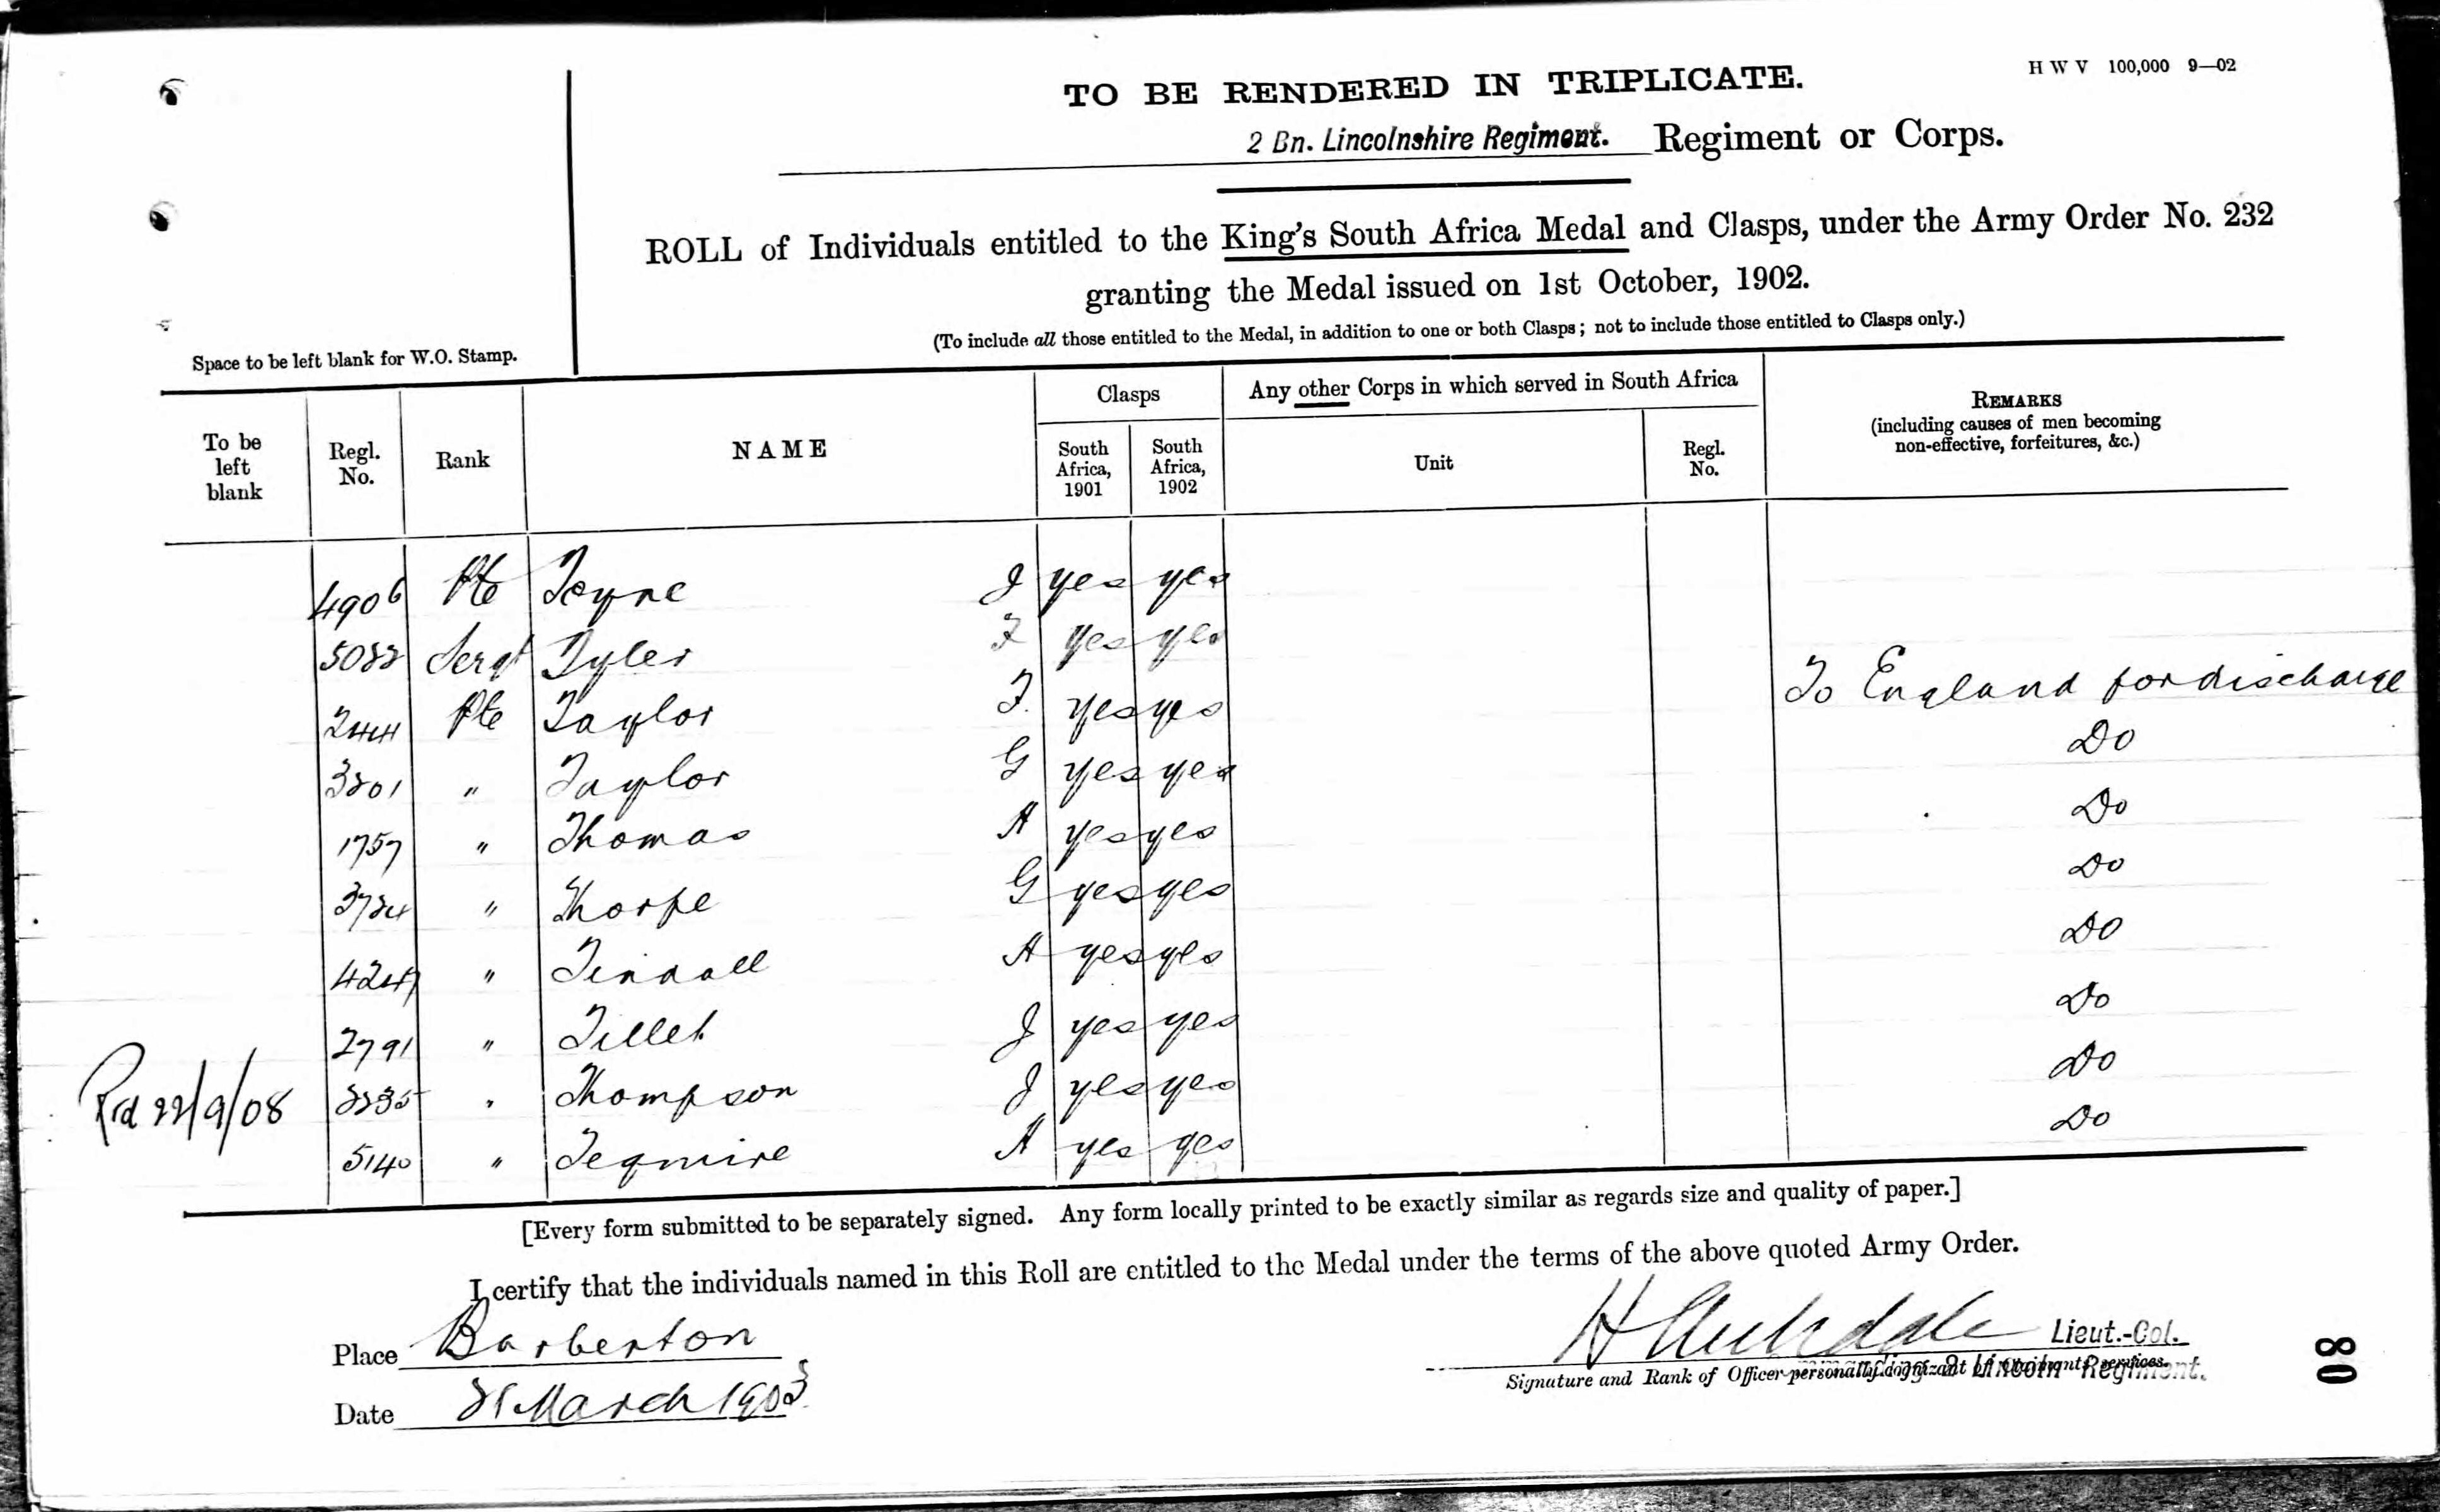 TO BE RENDERED IN TRIPLICATE.
H W V 100,000 9—02
2 Bn. Lincolnshire Regiment. Regiment or Corps.
ROLL of Individuals entitled to the King's South Africa Medal and Clasps, under the Army Order No. 232
granting the Medal issued on 1st October, 1902.
(To include all those entitled to the Medal, in addition to one or both Clasps; not to include those entitled to Clasps only.)
Space to be left blank for W.O. Stamp.
To be left blank
Regl. No.
Rank
NAME
Clasps
South Africa, 1901
South Africa, 1902
Any other Corps in which served in South Africa
Unit
Regl. No.
REMARKS
(including causes of men becoming
non-effective, forfeitures, &c.)
4906 Pte Toyne J yes yes
Sergt Tyler F yes yes
2444 Pte Taylor F. yes yes To England for discharge
3801 " Taylor G yes yes Do
1757 " Thomas A yes yes Do
3784 " Thorpe G yes yes Do
" Tindall A yes yes Do
2791 " Tillet J yes yes Do
22/9/08 " Thompson J yes yes Do
5140 " Teqmire A yes yes Do
[Every form submitted to be separately signed. Any form locally printed to be exactly similar as regards size and quality of paper.]
I certify that the individuals named in this Roll are entitled to the Medal under the terms of the above quoted Army Order.
Place Barberton
Lieut.-Col.
Signature and Rank of Officer personally cognizant of Claimant's services.
Lincoln Regiment.
Date 31 March 1903
80